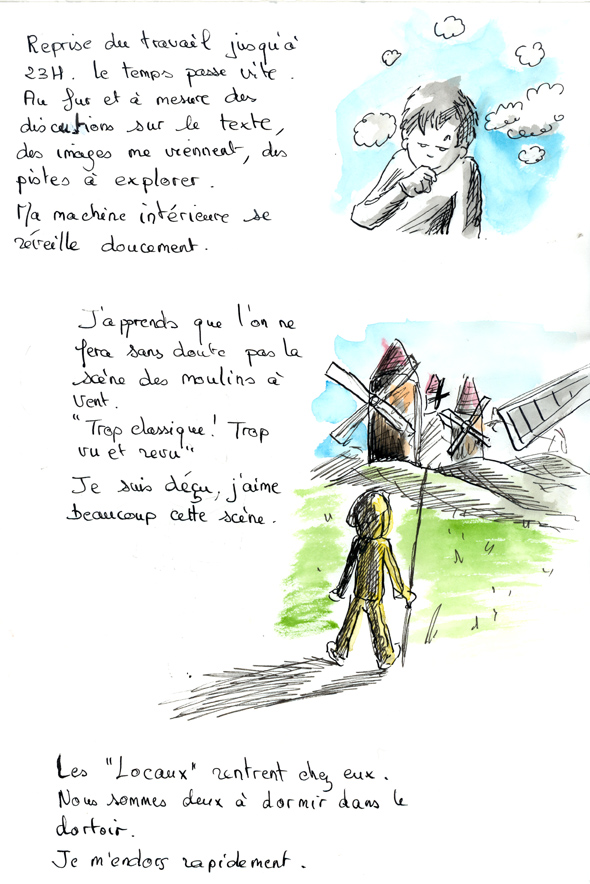 Reprise du travail jusqu'à
23H. Le temps passe vite.
Au fur et à mesure des
discutions sur le texte,
des images me viennent, des
pistes à explorer.
Ma machine intérieure se
réveille doucement.
J'apprends que l'on ne
fera sans doute pas la
scène des moulins à
vent.
"Trop classique! Trop
vu et revu"
Je suis déçu, j'aime
beaucoup cette scène.
Les "Locaux" rentrent chez eux.
Nous sommes deux à dormir dans le
dortoir.
Je m'endors rapidement.